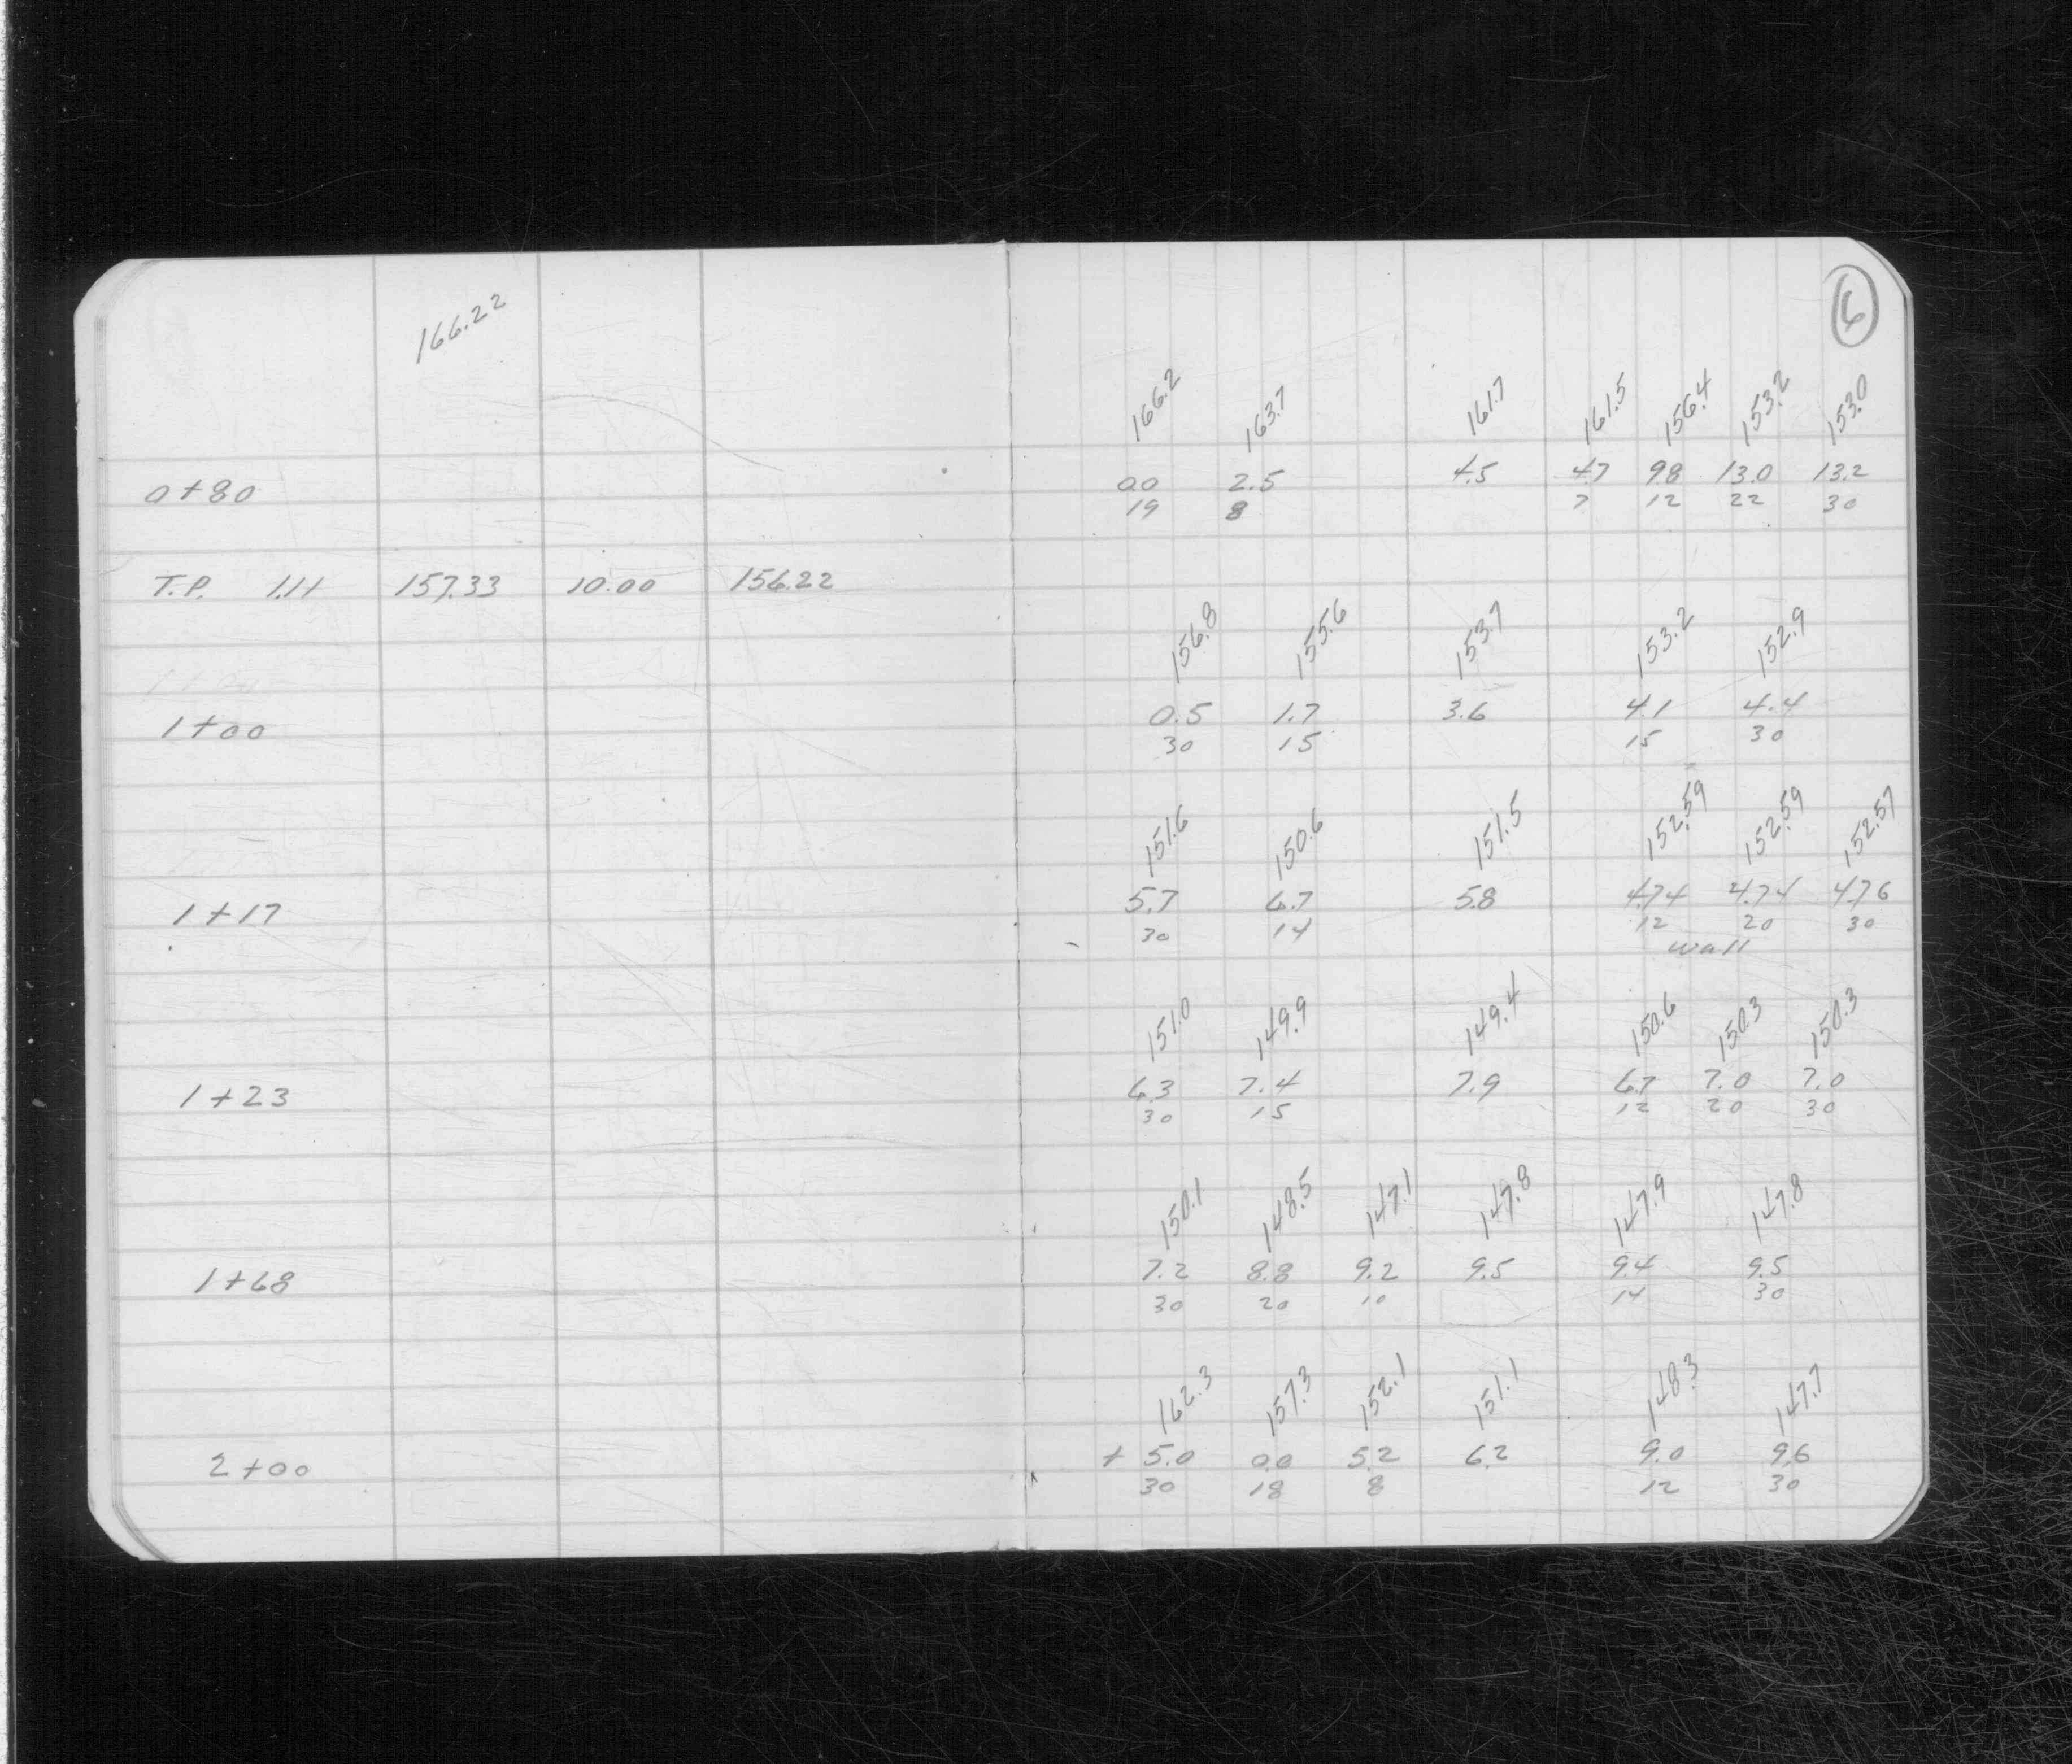 6
166.22
166.2 163.7 161.7 161.5 156.4 153.2 153.0
0+80 0.0 2.5 4.5 4.7 9.8 13.0 13.2
19 8 7 12 22 30
T.P. 1.11 157.33 10.00 156.22
156.8 155.6 153.7 153.2 152.9
1+00 0.5 1.7 3.6 4.1 4.4
30 15 15 30
151.6 150.6 151.5 152.59 152.59 152.57
1+17 5.7 6.7 5.8 4.74 4.74 4.76
30 14 12 20 30
wall
151.0 149.9 149.4 150.6 150.3 150.3
1+23 6.3 7.4 7.9 6.7 7.0 7.0
30 15 12 20 30
150.1 148.5 147.1 147.8 147.9 147.8
1+68 7.2 8.8 9.2 9.5 9.4 9.5
30 20 10 14 30
162.3 157.3 152.1 151.1 148.3 147.7
2+00 +5.0 0.0 5.2 6.2 9.0 9.6
30 18 8 12 30